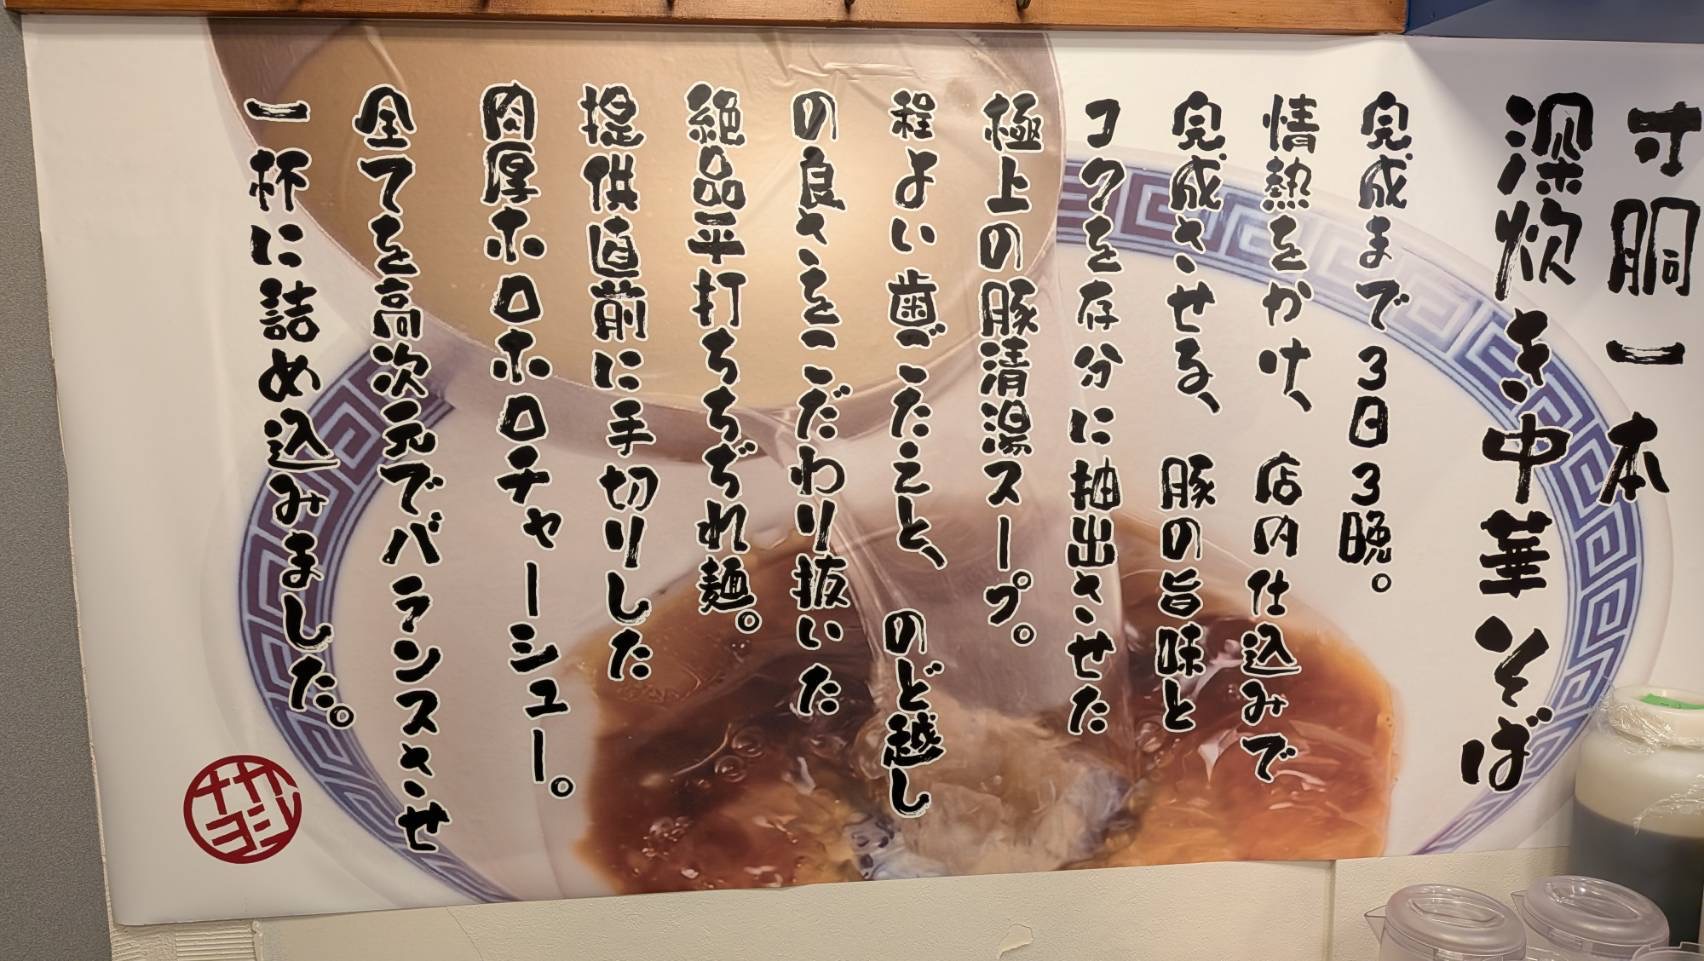 寸胴一本
深炊き中華そば
完成まで3日3晩。
情熱をかけ、店内仕込みで
完成させる、豚の旨味と
コクを存分に抽出させた
極上の豚清湯スープ。
程よい歯ごたえと、のど越し
の良さをこだわり抜いた
絶品平打ちちぢれ麺。
提供直前に手切りした
肉厚ホロホロチャーシュー。
全てを高次元でバランスさせ
一杯に詰め込みました。
ナカ
ヨシ